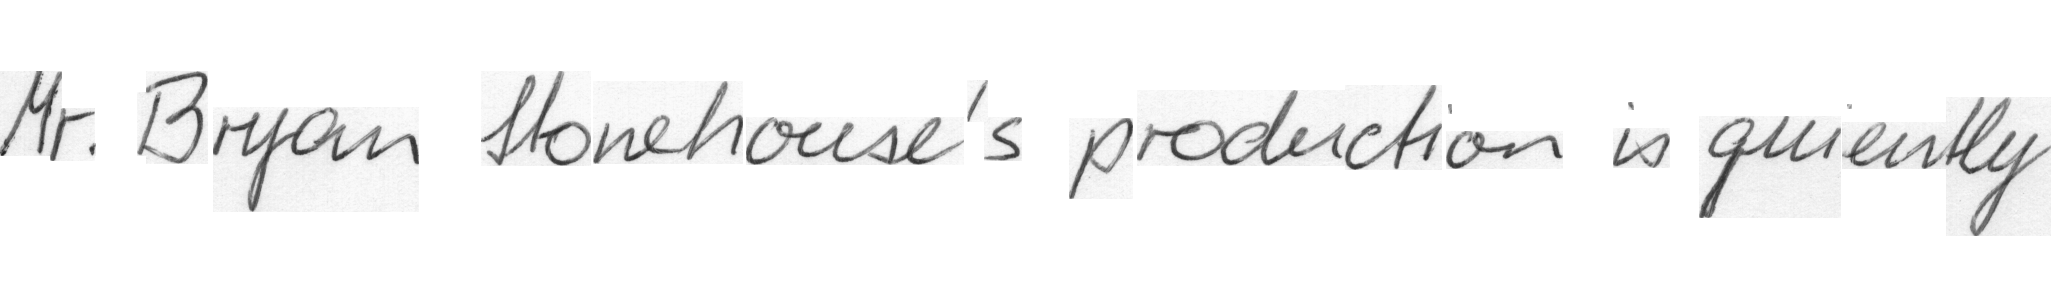 Mr. Bryan Stonehouse's production is quiently